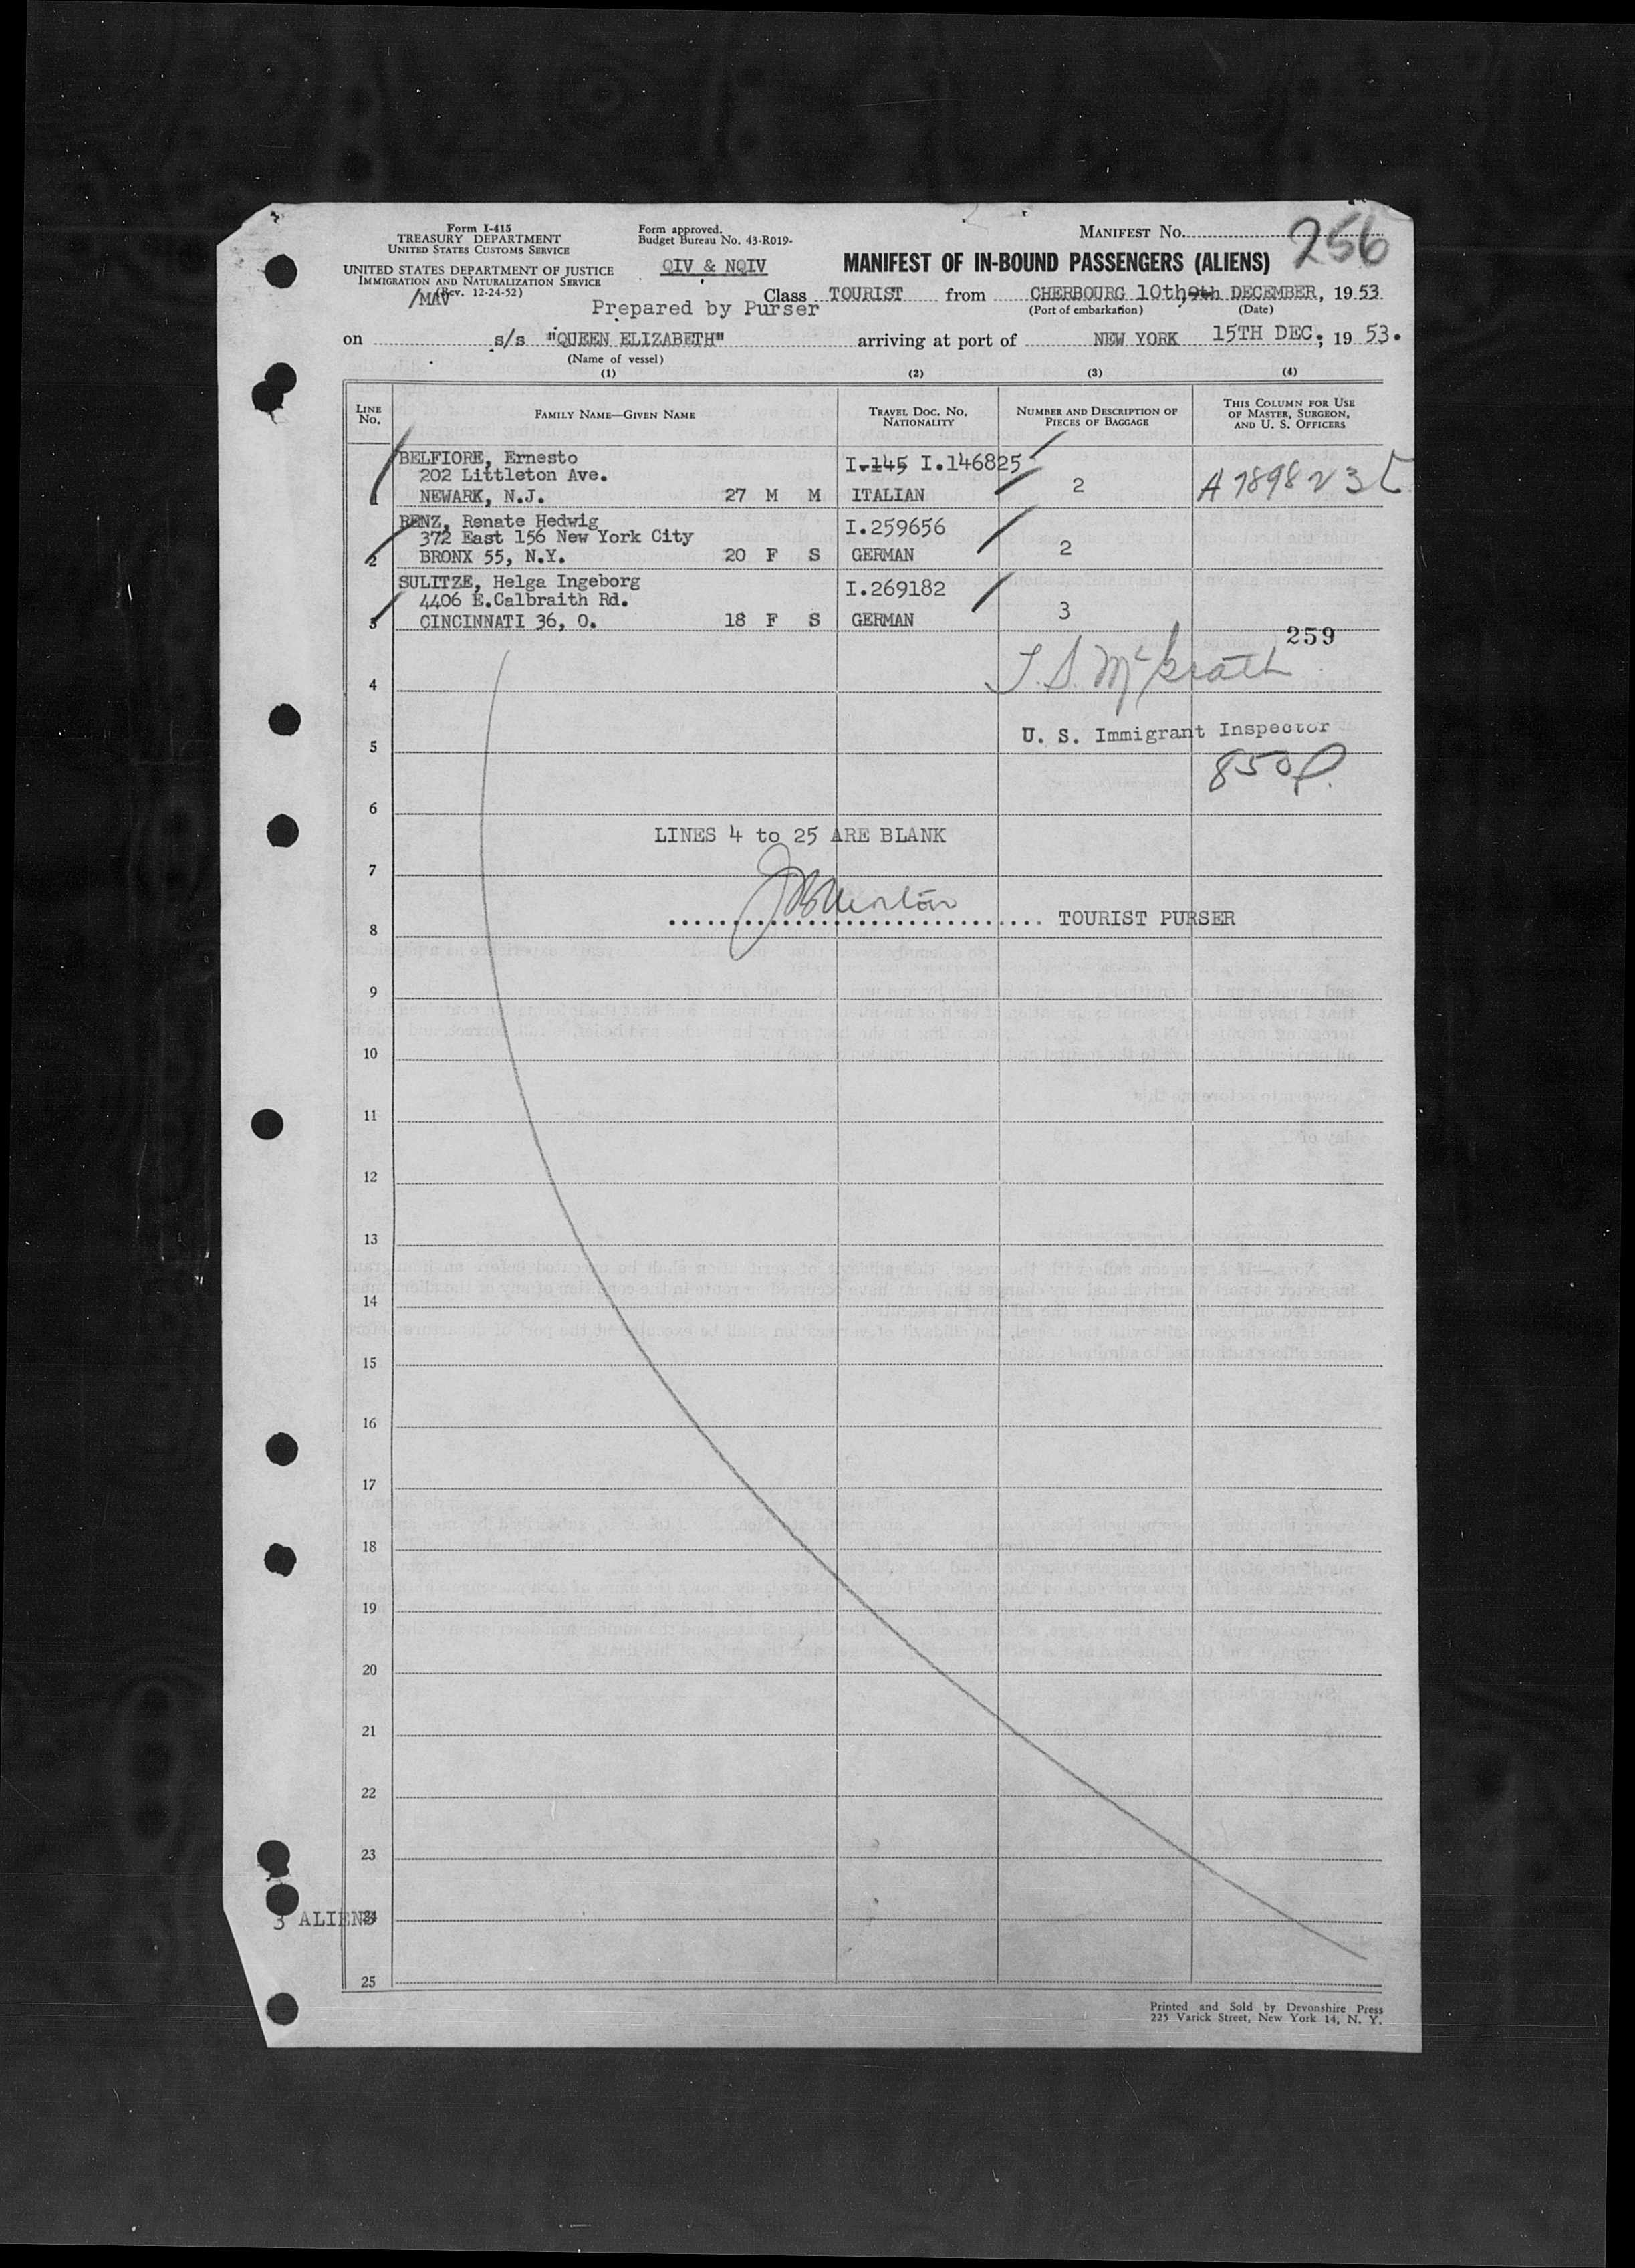 Form I-415
TREASURY DEPARTMENT
UNITED STATES CUSTOMS SERVICE
UNITED STATES DEPARTMENT OF JUSTICE
IMMIGRATION AND NATURALIZATION SERVICE
(Rev. 12-24-52)
/MAV
Form approved.
Budget Bureau No. 43-R019-
QIV & NQIV
Prepared by Purser
MANIFEST NO. 256
MANIFEST OF IN-BOUND PASSENGERS (ALIENS)
Class TOURIST from CHERBOURG 10th 9th DECEMBER, 1953
(Port of embarkation) (Date)
on s/s "QUEEN ELIZABETH" arriving at port of NEW YORK 15TH DEC., 1953.
(Name of vessel)
(1) (2) (3) (4)
LINE No. FAMILY NAME—GIVEN NAME TRAVEL DOC. NO. NATIONALITY NUMBER AND DESCRIPTION OF PIECES OF BAGGAGE THIS COLUMN FOR USE OF MASTER, SURGEON, AND U. S. OFFICERS
BELFIORE, Ernesto I-145 I.146825
202 Littleton Ave.
1 NEWARK, N.J. 27 M M ITALIAN 2 A 7898235
RENZ, Renate Hedwig I.259656
372 East 156 New York City
2 BRONX 55, N.Y. 20 F S GERMAN 2
SULITZE, Helga Ingeborg I.269182
4406 E.Calbraith Rd.
3 CINCINNATI 36, O. 18 F S GERMAN 3
259
4 T. S. McGrath
U. S. Immigrant Inspector
5
850p.
6
LINES 4 to 25 ARE BLANK
7
TOURIST PURSER
8
9
10
11
12
13
14
15
16
17
18
19
20
21
22
23
3 ALIENS 24
25
Printed and Sold by Devonshire Press
225 Varick Street, New York 14, N. Y.